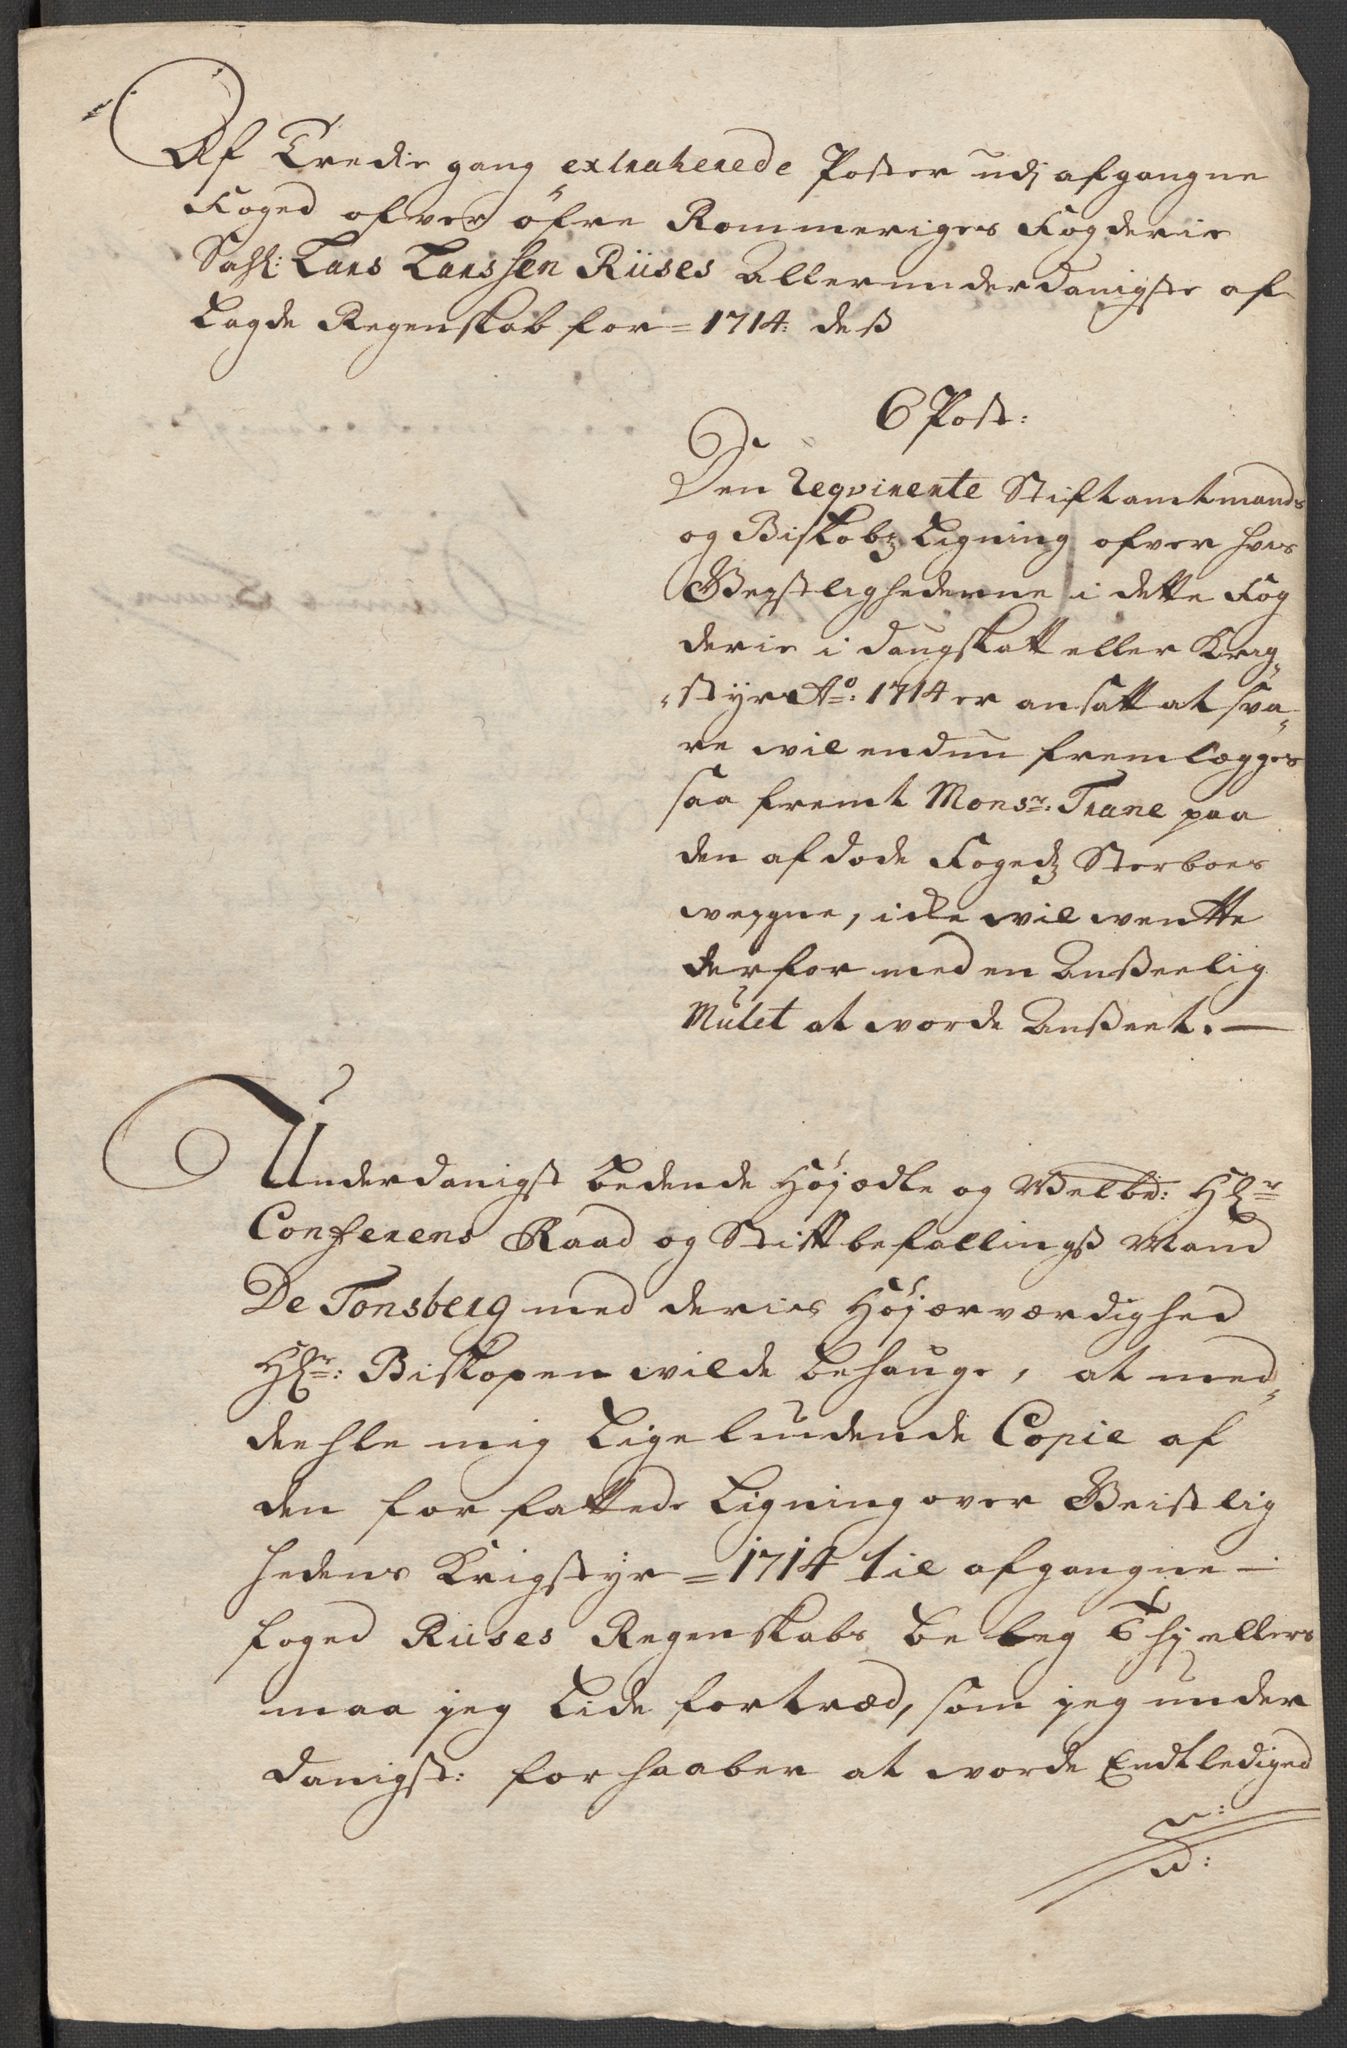 Af Tredie gang extraherede Poster udj afgangne
Foged ofver öfre Rommeriges Fogderie
Sahl: Lars Larssen Riises allerunderdanigste af
Lagde Regenskab for = 1714: dess
6 Post:
Den reqvirerte Stiftamtmands
og Biskobs Ligning ofver hvis
Geystlighederne i dette Fog
derie i daugskatt eller Krig„
„styr Ao: 1714 er ansatt at sva„
re vil endnu fremlægges
saa fremt Monsr: Trane paa
den afdøde Fogeds Sterboes
veygne, icke vil ventte
derfor med en Ansseelig
Mulct at vorde Ansseet. —
Underdanigst bedende Højædle og Welbr: Hr
Conferens Raad og Stiftbefallingss Mand
De Tonsberg med deris Højærværdighed
Hr: Biskopen vilde behauge, at med„
deehle mig Ligeludende Copie af
den forfattede Ligning over Geistlig
hedens Krigstyr = 1714 til afgangne —
foged Riises Regenskabs be ellers
maa jeg Lide fortræd, som jeg under
danigst: forhaaber at vorde Endtlediged